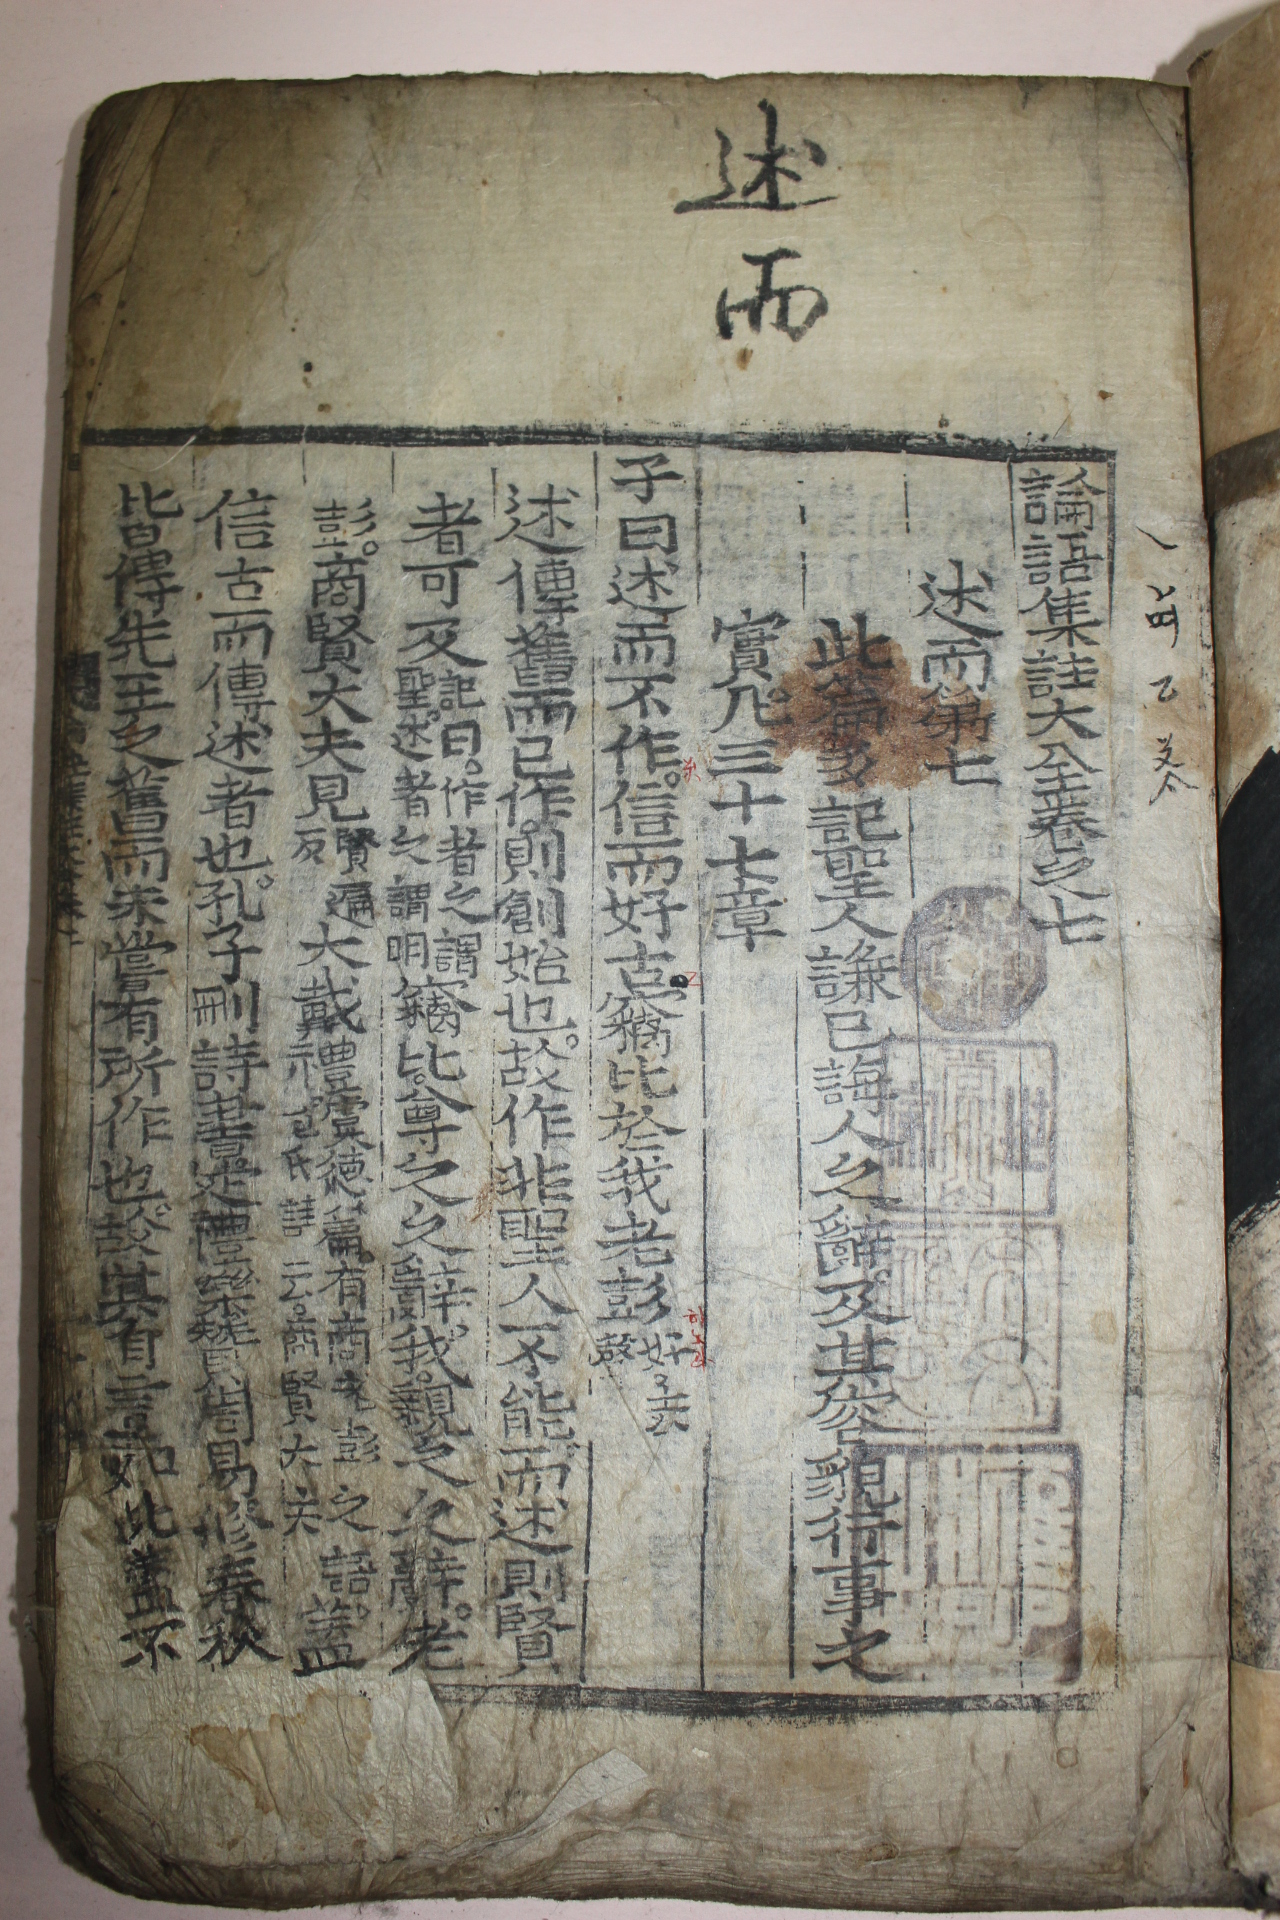 述而
論語集註大全卷之七
述而第七
此篇多記聖人謙已誨人之辭。及其容貌行事之
實。凡三十七章
子曰述而不作。信而好古。竊比於我老彭
好去聲
述傳舊而已。作則創始也。故作非聖人不能。而述則賢
者可及
記曰。作者之謂
聖。述者之謂明
竊比。尊之之辭。我。親之之辭。老
彭。商賢大夫見
賢遍
反
大戴
禮虞德篇。有商老彭之語。
包氏註云。商賢大夫
蓋
信古而傳述者也。孔子刪詩書定禮樂贊周易修春秋
皆傳先王之舊而未嘗有所作也。故其自言如此蓋不